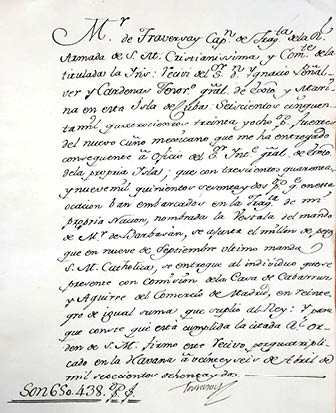 Mr. de Traversay Capn. de Fragta. de la Rl.
Armada de S. M. Cristianissima, y Comte. de la
titulada la Iris: Recivi del Sr. Dn. Ignacio Peñal-
ver y Cardenas Tesorero. gral. de Exto. y Mari-
na en esta Isla de Cuba, Seiscientos cinquen-
ta mil quatrocientos treinta y ocho ps. fuertes
del nuevo cuño mexicano que me ha entregado
conseguente a oficio del Sr. Intte. gral. de Exto.
de la propia Isla; que con trescientos quarenta,
y nueve mil quinientos sesenta y dos ps. q. en esta
ocacion van embarcados en la Fragta. de mi
propria Nacion, nombrada la Vestala del mando
de Mr. de Barbasan, se ajusta el millon de pesos
que en nueve de Septiembre ultimo manda
S. M. Catholica, se entregue al individuo que se
presente con Comicion de la Casa de Cabarrus
y Aguirre del Comercio de Madrid, en reinte-
gro de igual suma, que suplió al Rey: Y para
que conste que está cumplida la citada Rl. or-
den de S. M. firmo este Recivo por quatripli-
cado en la Havana á veinte y seis de Abril de
mil setecientos ochenta y dos.
Son 650.438. ps. fs.
Traversay